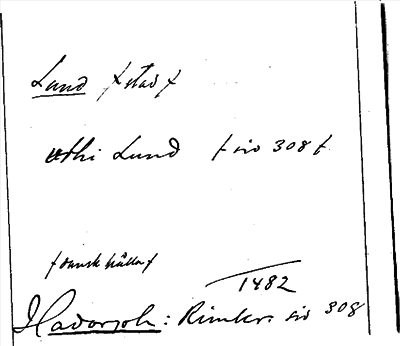 Lund (stad)
uthi Lund (sid 308)
(dansk källa)
1482
Hadorph: Rimkr. sid 308